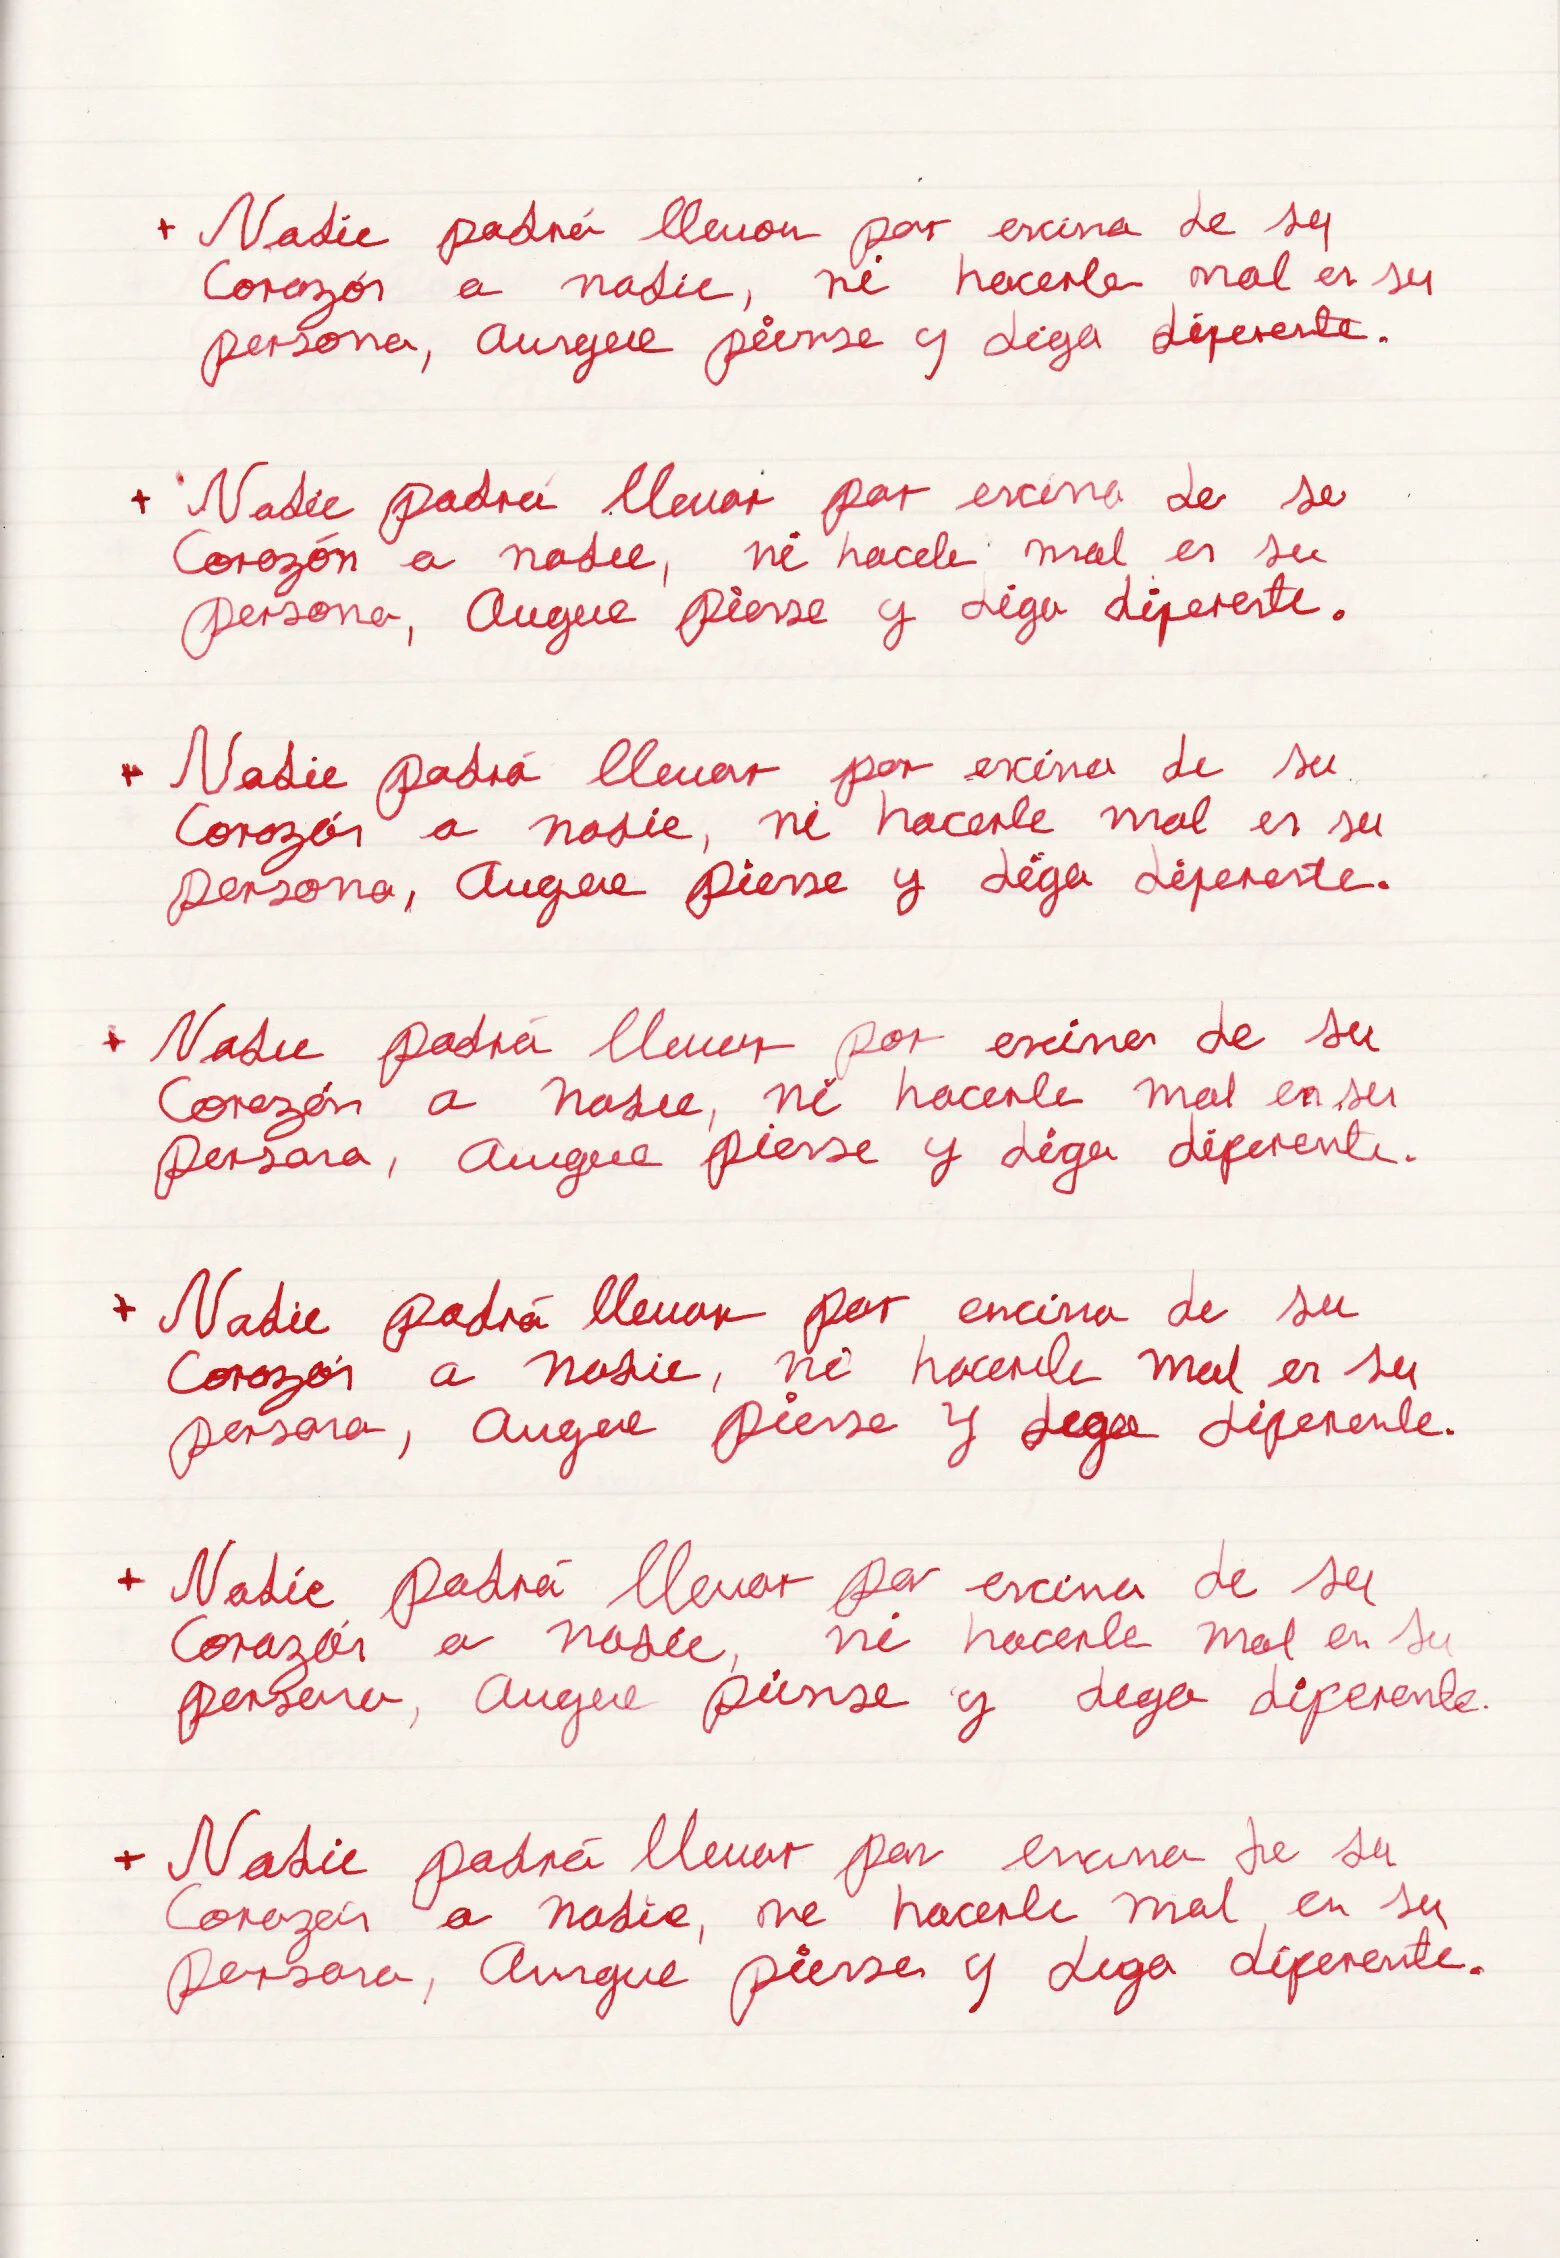 + Nadie podrá llevar por encima de su
Corazón a nadie, ni hacerle mal en su
persona, Aunque piense y diga diferente.
+ Nadie podrá llevar por encima de se
Corazón a nadie, ni hacele mal en su
persona, Auque piense y diga diferente.
+ Nadie podrá llevar por encima de su
Corazón a nadie, ni hacerle mal en su
persona, Auque piense y diga diferente.
+ Nadie podrá llevar por encima de su
Corazón a nadie, ni hacerle mal en su
persona, Aunque piense y diga diferente.
+ Nadie podrá llevar por encima de su
Corazón a nadie, ni hacerle mal en su
persona, Auque piense y diga diferente.
+ Nadie podrá llevar por encima de su
Corazón a nadie, ni hacerle mal en su
persona, Auque piense y diga diferente.
+ Nadie podrá llevar por encima de su
Corazón a nadie, ni hacerle mal en su
persona, Aunque piense y diga diferente.